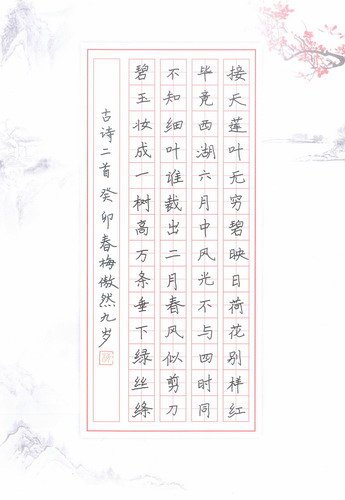 接天莲叶无穷碧映日荷花别样红
毕竟西湖六月中风光不与四时同
不知细叶谁裁出二月春风似剪刀
碧玉妆成一树高万条垂下绿丝绦
古诗二首癸卯春梅傲然九岁